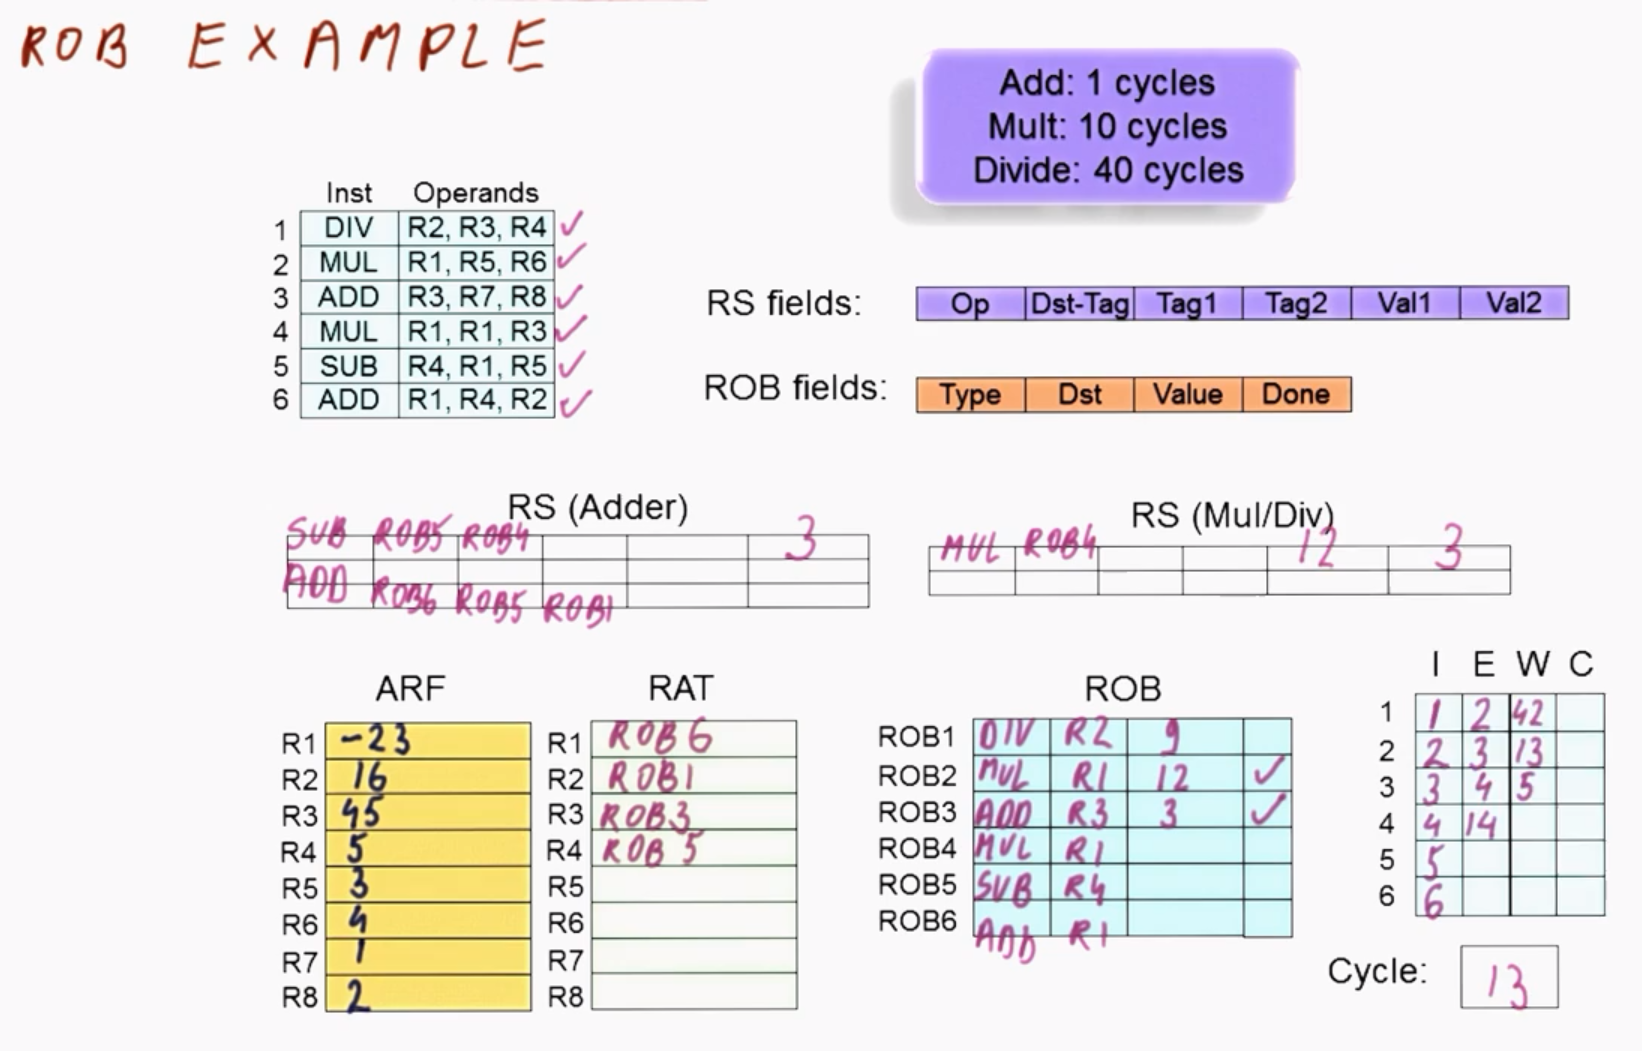 ROB EXAMPLE
Add: 1 cycles
Mult: 10 cycles
Divide: 40 cycles
Inst Operands
1 DIV R2, R3, R4 ✓
2 MUL R1, R5, R6 ✓
3 ADD R3, R7, R8 ✓
4 MUL R1, R1, R3 ✓
5 SUB R4, R1, R5 ✓
6 ADD R1, R4, R2 ✓
RS fields: Op Dst-Tag Tag1 Tag2 Val1 Val2
ROB fields: Type Dst Value Done
RS (Adder)
SUB ROB5 ROB4 3
ADD ROB6 ROB5 ROB1
RS (Mul/Div)
MUL ROB4 12 3
ARF
R1 -23
R2 16
R3 45
R4 5
R5 3
R6 4
R7 1
R8 2
RAT
R1 ROB6
R2 ROB1
R3 ROB3
R4 ROB5
R5
R6
R7
R8
ROB
ROB1 DIV R2 9
ROB2 MUL R1 12 ✓
ROB3 ADD R3 3 ✓
ROB4 MUL R1
ROB5 SUB R4
ROB6 ADD R1
I E W C
1 1 2 42
2 2 3 13
3 3 4 5
4 4 14
5 5
6 6
Cycle: 13